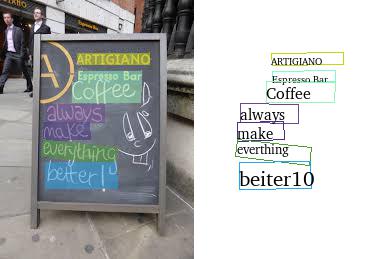 ARTIGIANO
ARTIGIANO
Espresso Bar
Coffee
always
make
everything
better!
ARTIGIANO
Espresso Bar
Coffee
always
make
everthing
beiter10